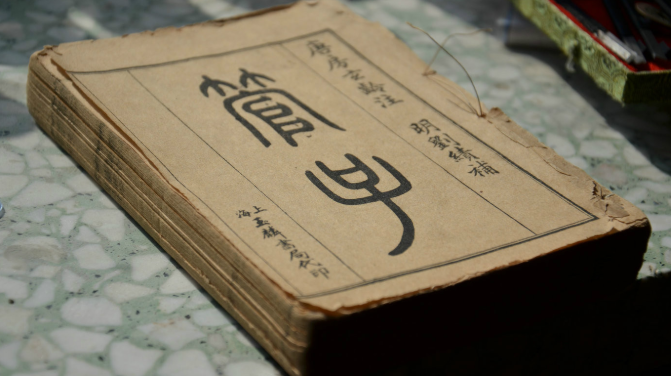 唐房玄齡注
明劉績補
管子
上海書局代印